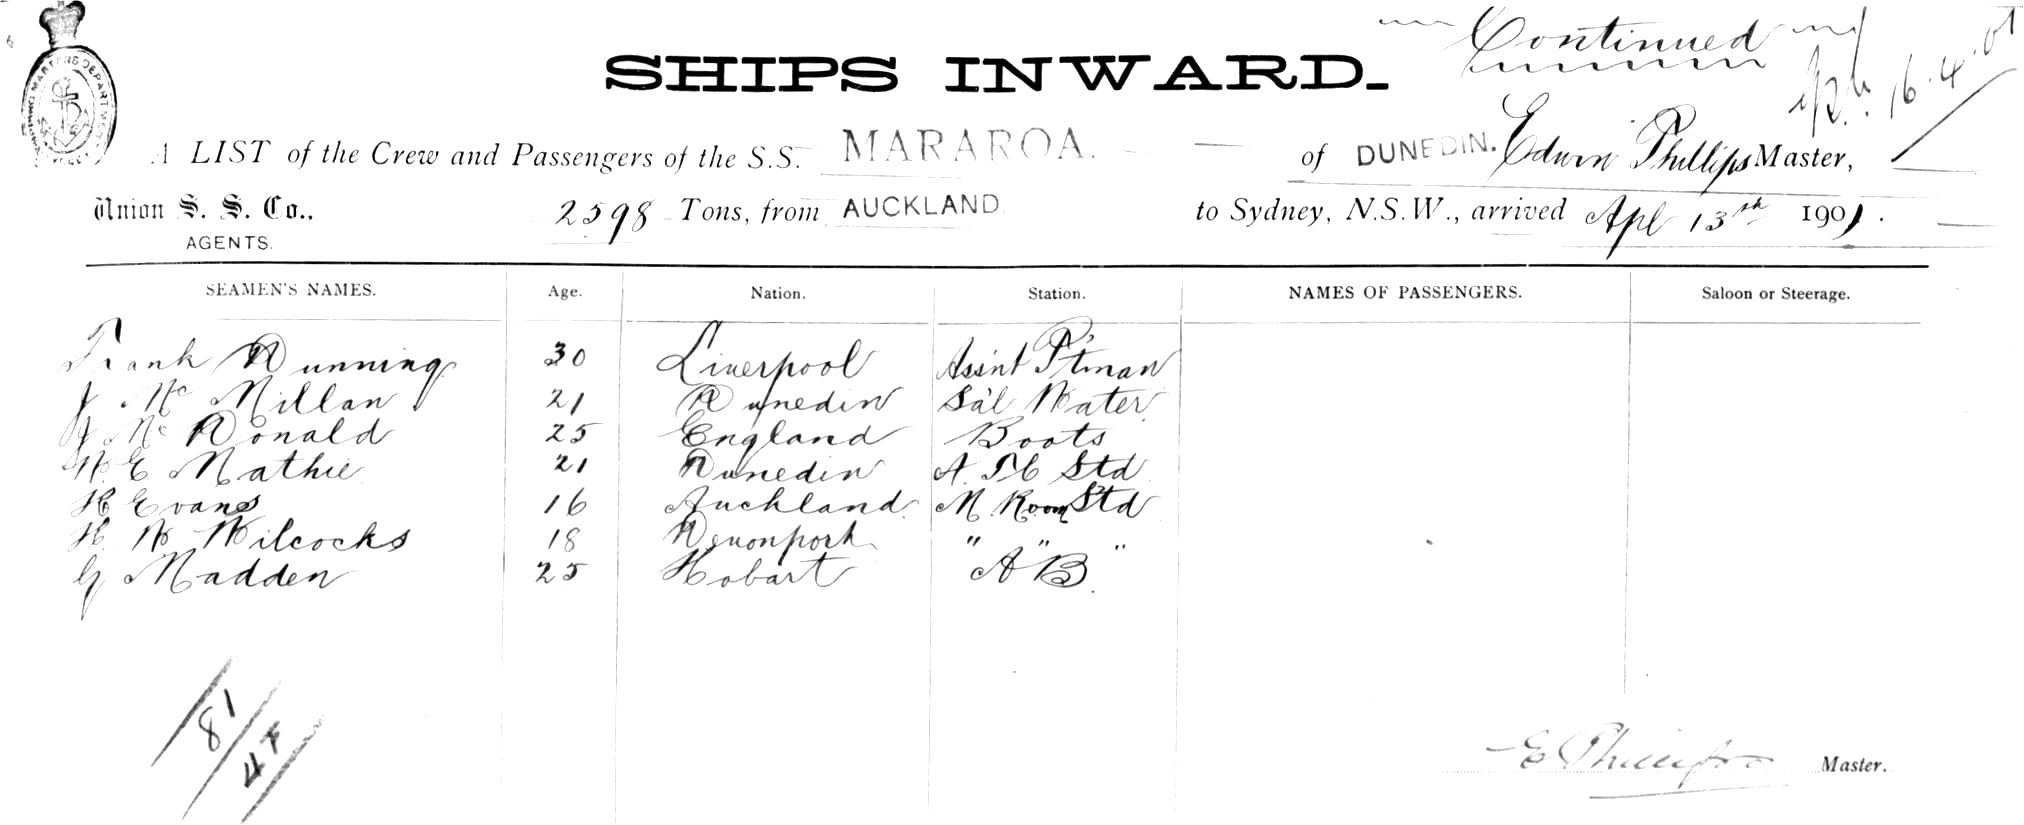 Continued
16.4.01
SHIPS INWARD.
A LIST of the Crew and Passengers of the S.S. MARAROA. of DUNEDIN. Edwin Phillips Master,
Union S. S. Co., 2598 Tons, from AUCKLAND to Sydney, N.S.W., arrived Apl 13th 1901.
AGENTS.
SEAMEN'S NAMES. Age. Nation. Station. NAMES OF PASSENGERS. Saloon or Steerage.
Frank Dunning 30 Liverpool Assnt P'tman
J Mc Millan 21 Dunedin Sal Water
J Mc Donald 25 England Boots
W E Mathie 21 Dunedin A. Std
H Evans 16 Auckland M. Room Std
H. W Wilcocks 18 Devonport " " "
G Madden 25 Hobart A B.
81
47
E Phillips Master.